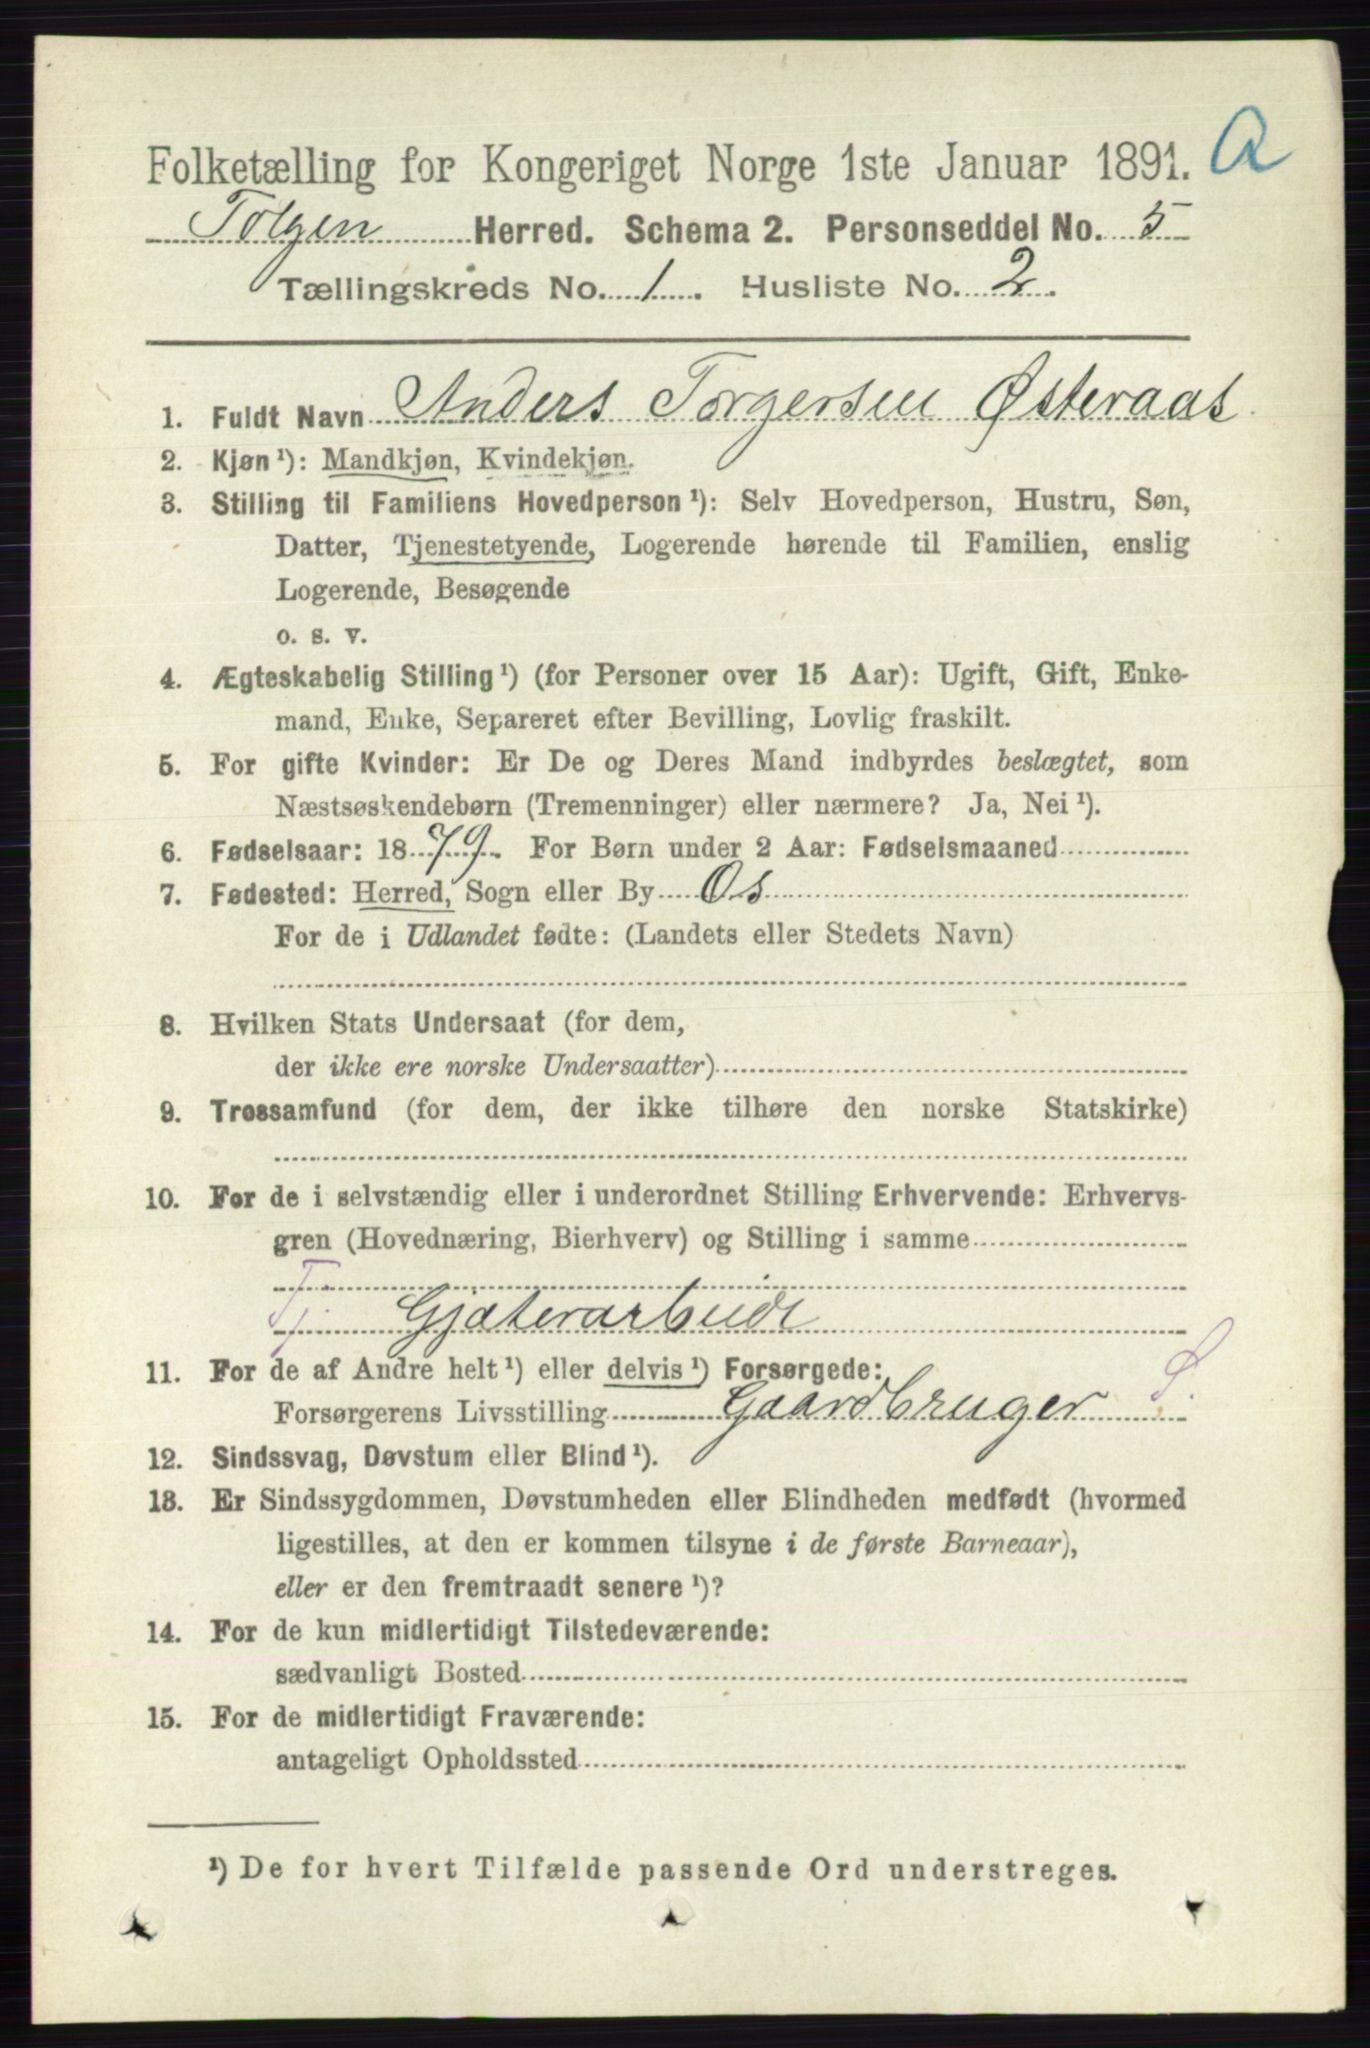 Folketælling for Kongeriget Norge 1ste Januar 1891. a
Tolgen Herred. Schema 2. Personseddel No. 5
Tællingskreds No. 1. Husliste No. 2.
1. Fuldt Navn Anders Torgersen Østeraas
2. Kjøn ¹): Mandkjøn, Kvindekjøn.
3. Stilling til Familiens Hovedperson ¹): Selv Hovedperson, Hustru, Søn,
Datter, Tjenestetyende, Logerende hørende til Familien, enslig
Logerende, Besøgende
o. s. v.
4. Ægteskabelig Stilling ¹) (for Personer over 15 Aar): Ugift, Gift, Enke-
mand, Enke, Separeret efter Bevilling, Lovlig fraskilt.
5. For gifte Kvinder: Er De og Deres Mand indbyrdes beslægtet, som
Næstsøskendebørn (Tremenninger) eller nærmere? Ja, Nei ¹).
6. Fødselsaar: 1879. For Børn under 2 Aar: Fødselsmaaned
7. Fødested: Herred, Sogn eller By Os
For de i Udlandet fødte: (Landets eller Stedets Navn)
8. Hvilken Stats Undersaat (for dem,
der ikke ere norske Undersaatter)
9. Trossamfund (for dem, der ikke tilhøre den norske Statskirke)
10. For de i selvstændig eller i underordnet Stilling Erhvervende: Erhvervs-
gren (Hovednæring, Bierhverv) og Stilling i samme
Tj. Gjæterarbeide
11. For de af Andre helt ¹) eller delvis ¹) Forsørgede:
Forsørgerens Livsstilling Gaardbruger S.
12. Sindssvag, Døvstum eller Blind ¹).
13. Er Sindssygdommen, Døvstumheden eller Blindheden medfødt (hvormed
ligestilles, at den er kommen tilsyne i de første Barneaar),
eller er den fremtraadt senere ¹)?
14. For de kun midlertidigt Tilstedeværende:
sædvanligt Bosted
15. For de midlertidigt Fraværende:
antageligt Opholdssted
¹) De for hvert Tilfælde passende Ord understreges.